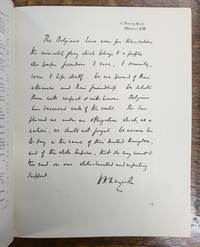 10, Downing Street,
Whitehall, S.W.
The Belgians have won for themselves
the immortal glory which belongs to a people
who prefer freedom to ease, to security,
even to life itself. We are proud of their
alliance and their friendship. We salute
them with respect & with honour. Belgium
has deserved well of the world. She has
placed us under an obligation which, as a
nation, we shall not forget. We assure her
to day in the name of this United Kingdom,
and of the whole Empire, that she may count to
the end on our whole-hearted and unfailing
support.
H H Asquith